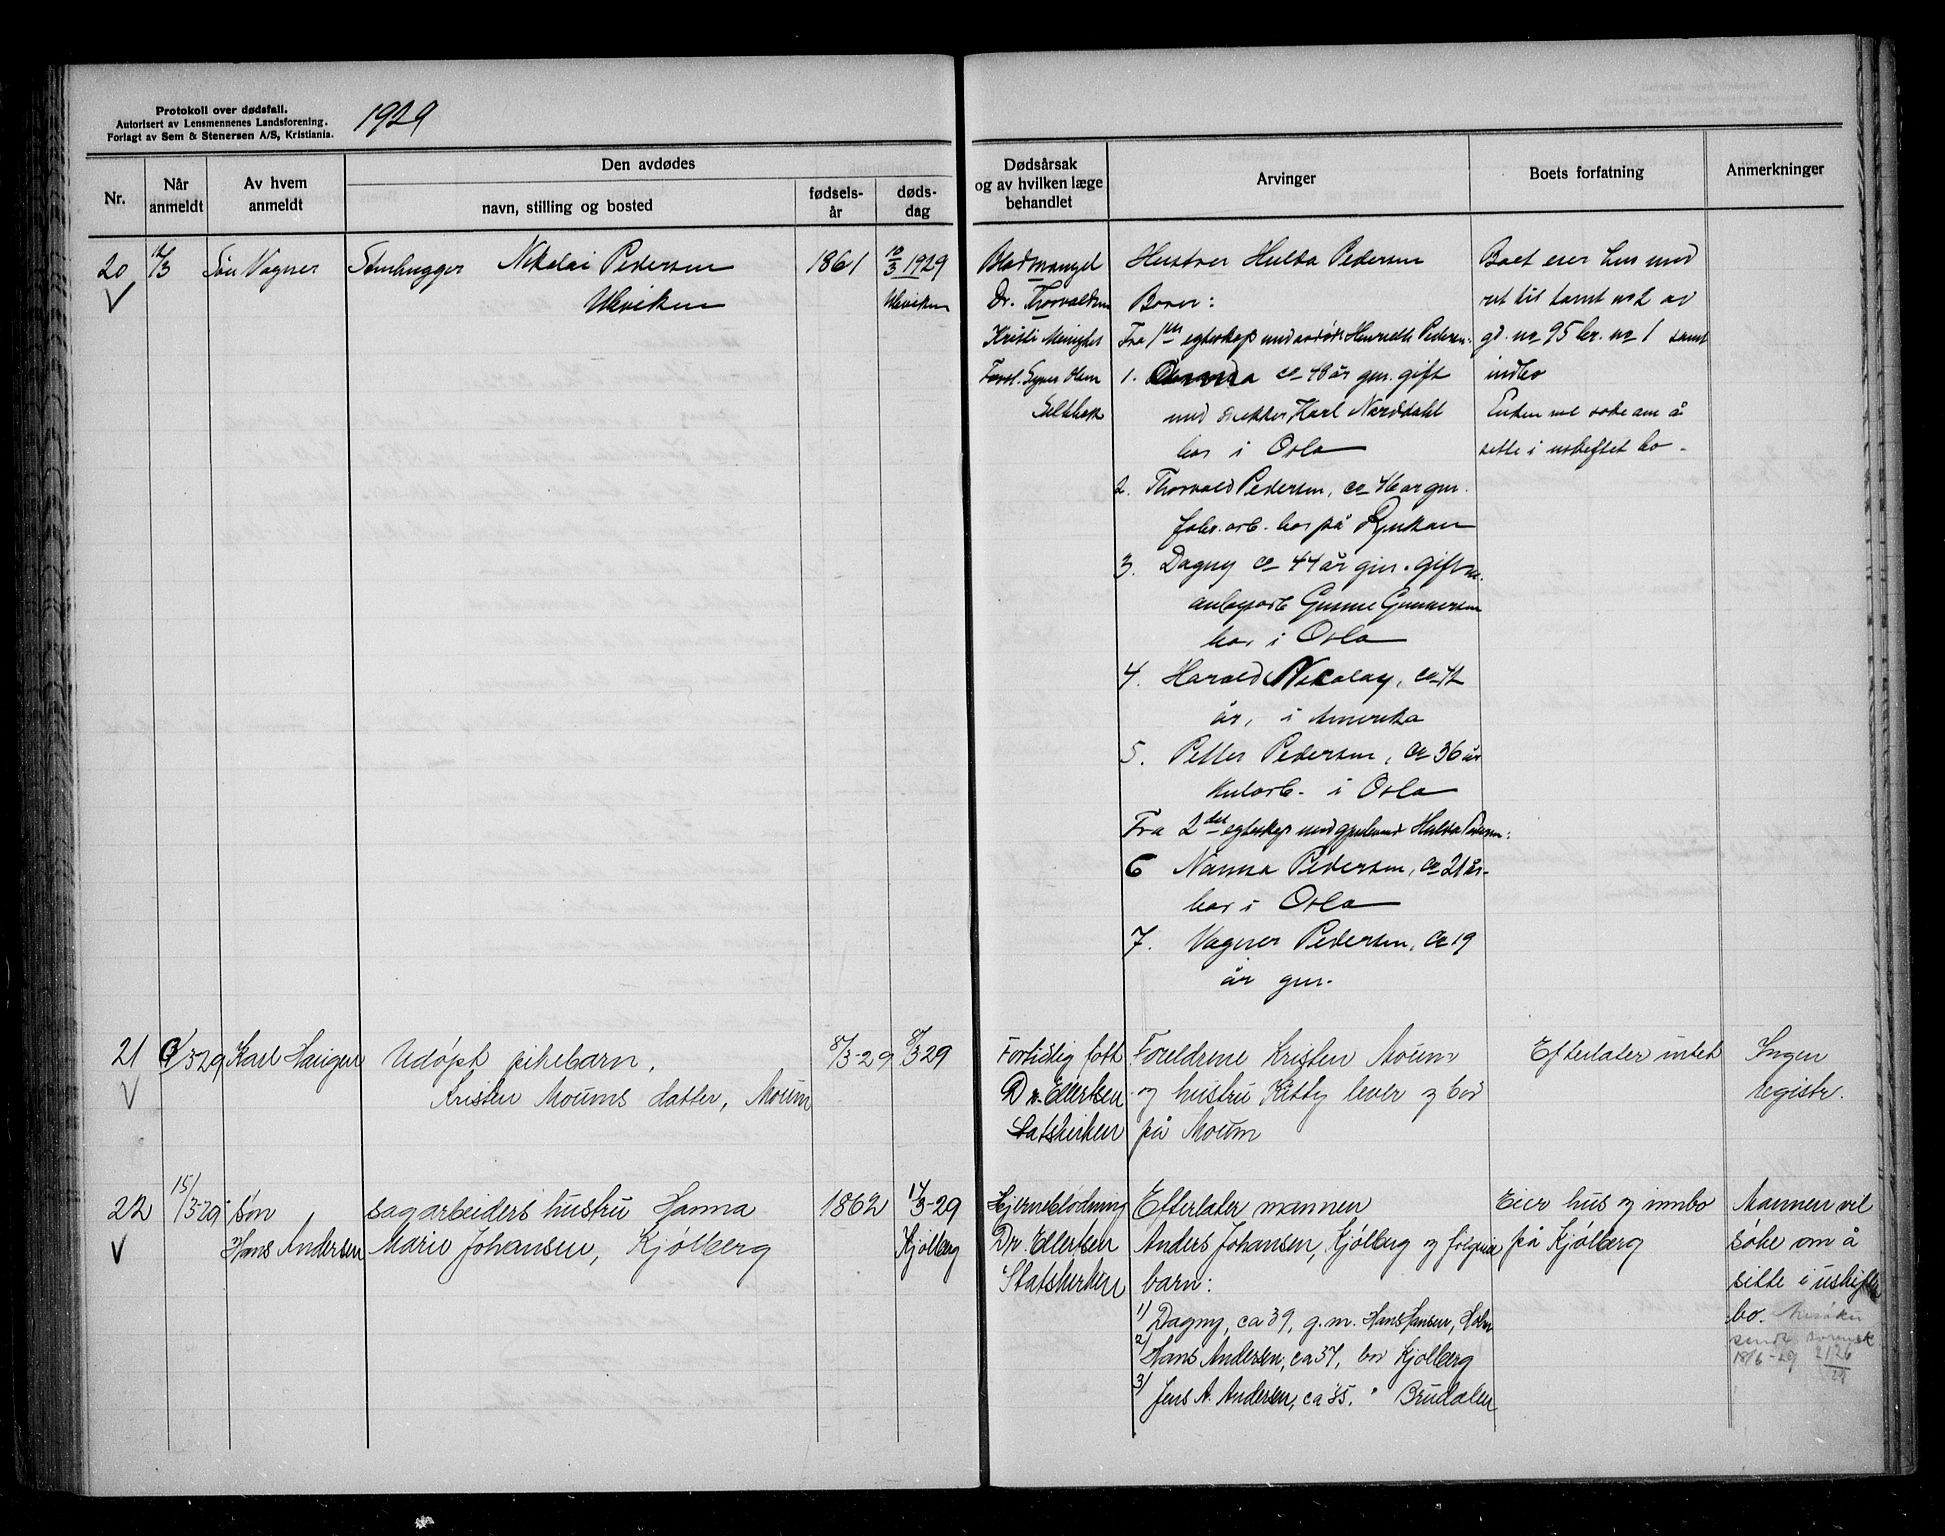 Protokoll over dødsfall.
Autorisert av Lensmennenes Landsforening.
Forlagt av Sem & Stenersen A/S, Kristiania.
1929
Nr.
Når anmeldt
Av hvem anmeldt
Den avdødes
navn, stilling og bosted
fødsels-år
døds-dag
Dødsårsak og av hvilken læge behandlet
Arvinger
Boets forfatning
Anmerkninger
20
12/3
Søn Vagner
Stenhugger Nikolai Pedersen
Ulviken
1861
10/3 1929
Ulviken
Blodmangel
Dr. Thorvaldsen
Kristi Menighet
Hustru Hulda Pedersen
Barn:
Fra 1ste egteskap med avdøde Henriette Pedersen:
1. ca 48 år gml. gift
med snekker Karl Narddahl
bor i Oslo
2. Thorvald Pedersen, ca 46 år gml.
fabr. arb. bor på Rjukan
3. Dagny ca 44 år gml. gift m.
anlegsarb Gunne Gunnersen
bor i Oslo
4. Harald Nicolay, ca 42
år, i Amerika
5. Petter Pedersen, ca 36 år
i Oslo
Fra 2det egteskap med gjenlevende Hulda Pedersen:
6 Nanna Pedersen, ca 21 år.
bor i Oslo
7. Vagner Pedersen, ca 19
år gml.
Boet eier hus med
ret til tomt no 2 av
gd. no 95 br. no 1 samt
indbo
Enken vil søke om å
sitte i uskiftet bo.
21
9/3 29
Karl Haugen
Udøpt pikebarn,
Kristen Moums datter, Moum
8/3-29
8/3 29
Fortidlig født
Dr. Ellertsen
Statskirken
Foreldrene Kristen Moum
og hustru Kitty lever og bor
på Moum
Efterlater intet
Ingen
registr.
22
15/3-29
søn
Hans Andersen
sagarbeiders hustru Hanna
Marie Johansen, Kjølberg
1862
14/3-29
Kjølberg
Hjerneblødning
Dr. Ellertsen
Statskirken
Efterlater mannen
Anders Johansen, Kjølberg og følgende
barn:
1) Dagny, ca 39, g.m. Hans Hansen,
2) Hans Andersen, ca 37, bor Kjølberg
3) Jens A. Andersen, ca 35. " Brudalen
Eier hus og innbo
på Kjølberg
Mannen vil
søke om å
sitte i uskiftet
bo.
18/6-29 2126/29